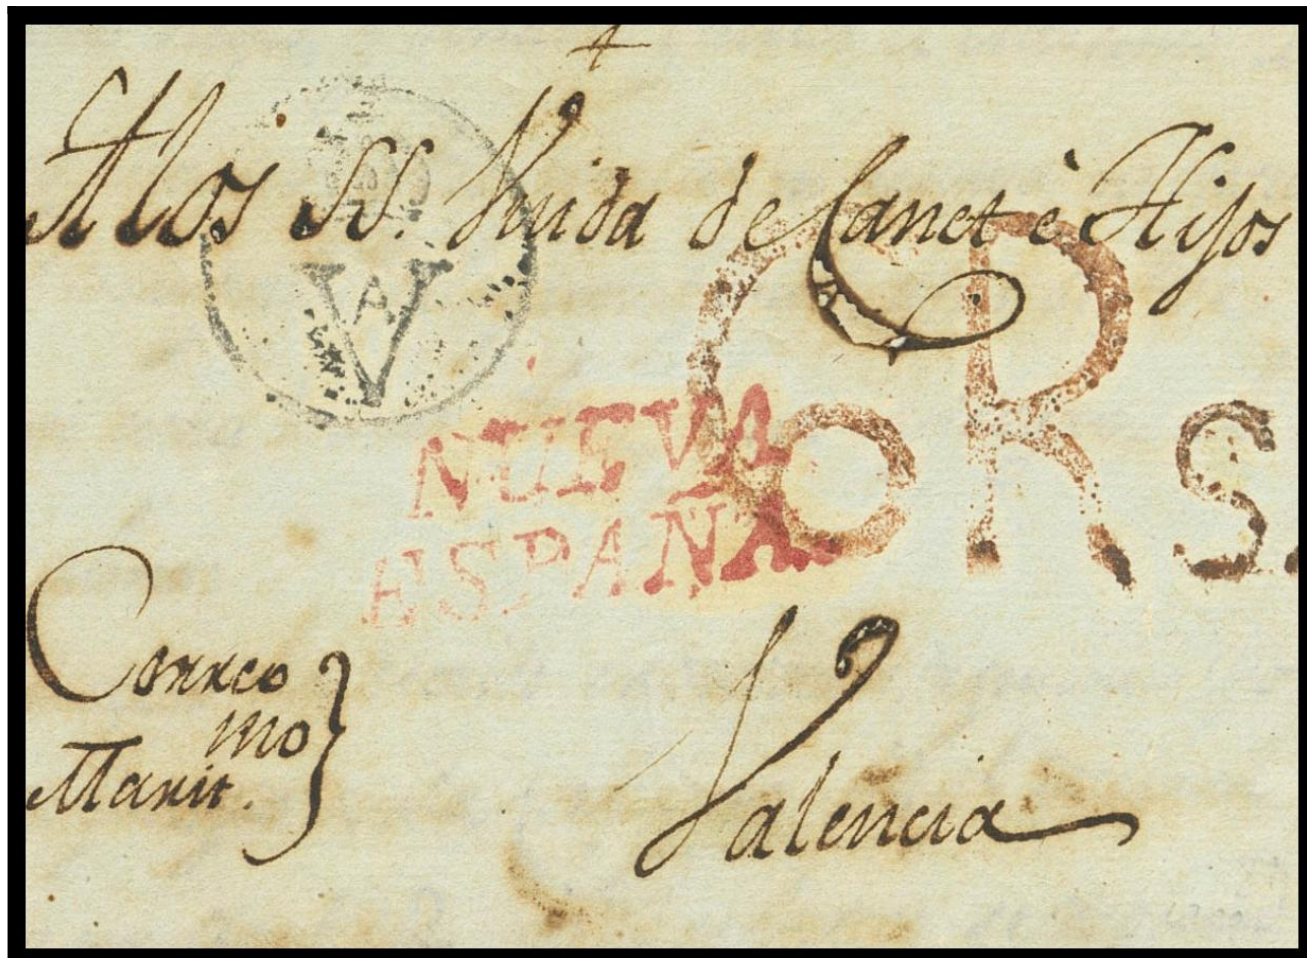 A los SS. Viuda de Canet è Hijos
VA
NUEVA
ESPAÑA.
6 Rs.
Correo
mo
Marit.
Valencia